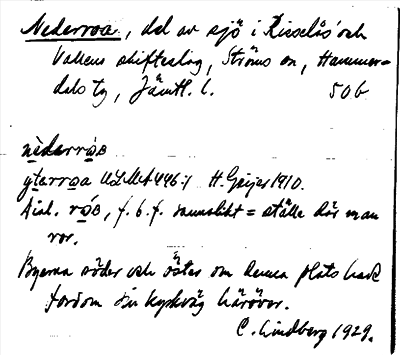 Nederroa, del av sjö i Risselås' och
Vallens skifteslag, Ströms sn, Hammer=
dals tg, Jämtl. l. 50 b
nèderróɒ
yterroa ULMA 446:1 H. Geijer 1910.
Dial. róɒ, f. b. f. sannolikt = ställe där man
ror.
Byarna söder och öster om denna plats hade
fordom sin kyrkväg häröver.
C. Lindberg 1929.